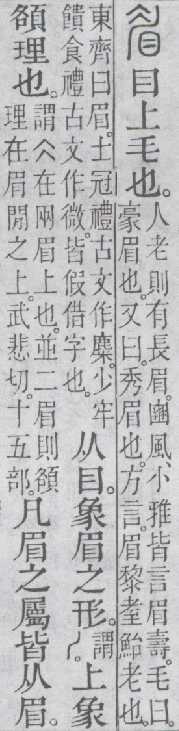 眉目上毛也。人老則有長眉。豳風、小雅皆言眉壽。毛曰。豪眉也。又曰。秀眉也。方言。眉黎耊鮐老也。
東齊曰眉。士冠禮古文作麋。少牢饋食禮古文作微。皆假借字也。从目。象眉之形。謂。上象
頟理也。謂仌在兩眉上也。並二眉則頟理在眉閒之上。武悲切。十五部。凡眉之屬皆从眉。